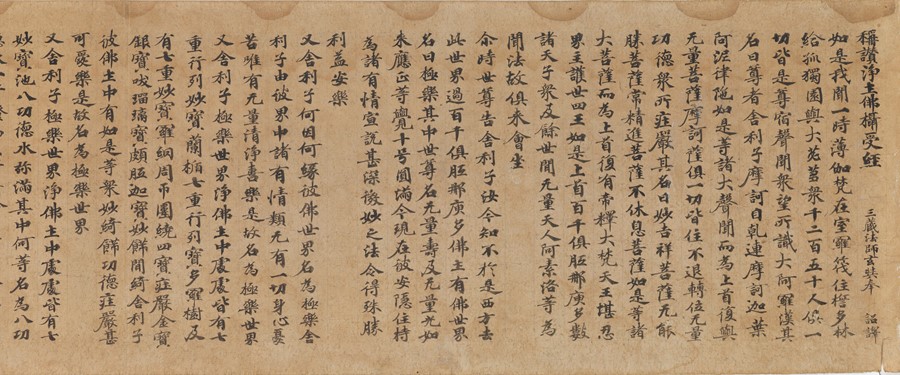 稱讚淨土佛攝受經
三藏法師玄奘奉 詔譯
如是我聞一時薄伽梵在室羅筏住誓多林
給孤獨園與大苾芻衆千二百五十人俱一
切皆是尊宿聲聞衆望所識大阿羅漢其
名曰尊者舍利子摩訶目乾連摩訶迦葉
阿泥律陁如是等諸大聲聞而為上首復與
无量菩薩摩訶薩俱一切皆住不退轉位无量
功德衆所莊嚴其名曰妙吉祥菩薩无能
勝菩薩常精進菩薩不休息菩薩如是等諸
大菩薩而為上首復有帝釋大梵天王堪忍
界主護世四王如是上首百千俱胝那庾多數
諸天子衆及餘世間无量天人阿素洛等為
聞法故俱來會坐
尒時世尊告舍利子汝今知不於是西方去
此世界過百千俱胝那庾多佛土有佛世界
名曰極樂其中世尊名无量壽及无量光如
來應正等覺十号圓滿今現在彼安隱住持
為諸有情宣說甚深微妙之法令得殊勝
利益安樂
又舍利子何因何緣彼佛世界名為極樂舍
利子由彼界中諸有情類无有一切身心憂
苦唯有无量清淨喜樂是故名為極樂世界
又舍利子極樂世界淨佛土中處處皆有七
重行列妙寶蘭楯七重行列寶多羅樹及
有七重妙寶羅網周帀圍繞四寶莊嚴金寶
銀寶吠瑠璃寶頗胝迦寶妙飾間綺舍利子
彼佛土中有如是等衆妙綺飾功德莊嚴甚
可愛樂是故名為極樂世界
又舍利子極樂世界淨佛土中處處皆有七
妙寶池八功德水弥滿其中何等名為八功